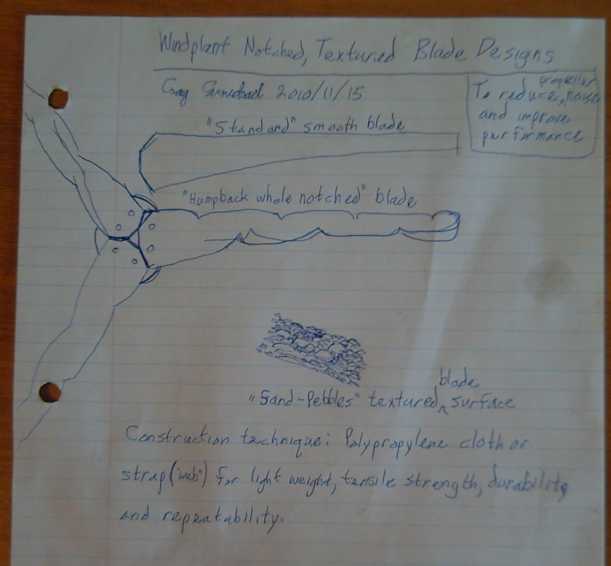 Windplant Notched, Textured Blade Designs
2010/11/15
To reduce propeller noise
and improve
performance
"Standard" smooth blade
"Humpback whole notched" blade
"Sand-Pebbles" textured blade surface
Construction technique: Polypropylene cloth or
strap ("web") for light weight, tensile strength, durability
and repeatability.